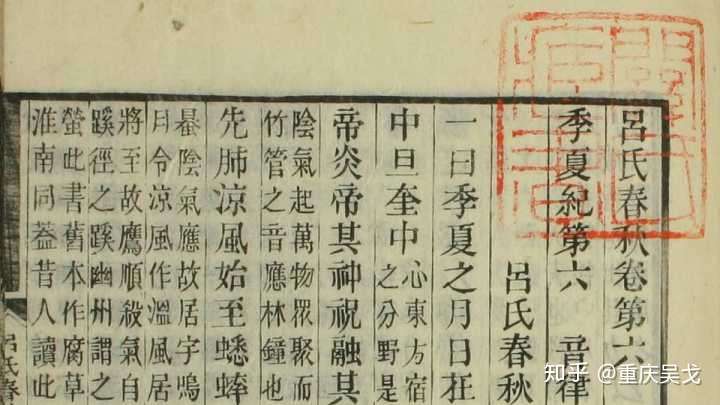 呂氏春秋卷第六
季夏紀第六 音律
呂氏春秋
一曰季夏之月日在
中旦奎中
心東方宿
之分野是
帝炎帝其神祝融其
陰氣起萬物眾聚而
竹管之音應林鐘也
先肺涼風始至蟋蟀
陰氣應故居宇鳴
月令涼風作溫風居
將至故鷹順殺氣自
蹊徑之蹊幽州謂之
螢此書舊本作腐草
淮南同葢昔人讀此
呂氏春
知乎 @重庆吴戈